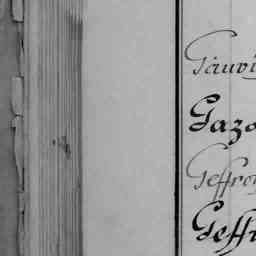 Gauvi
Gazo
Geffroy
Geffr